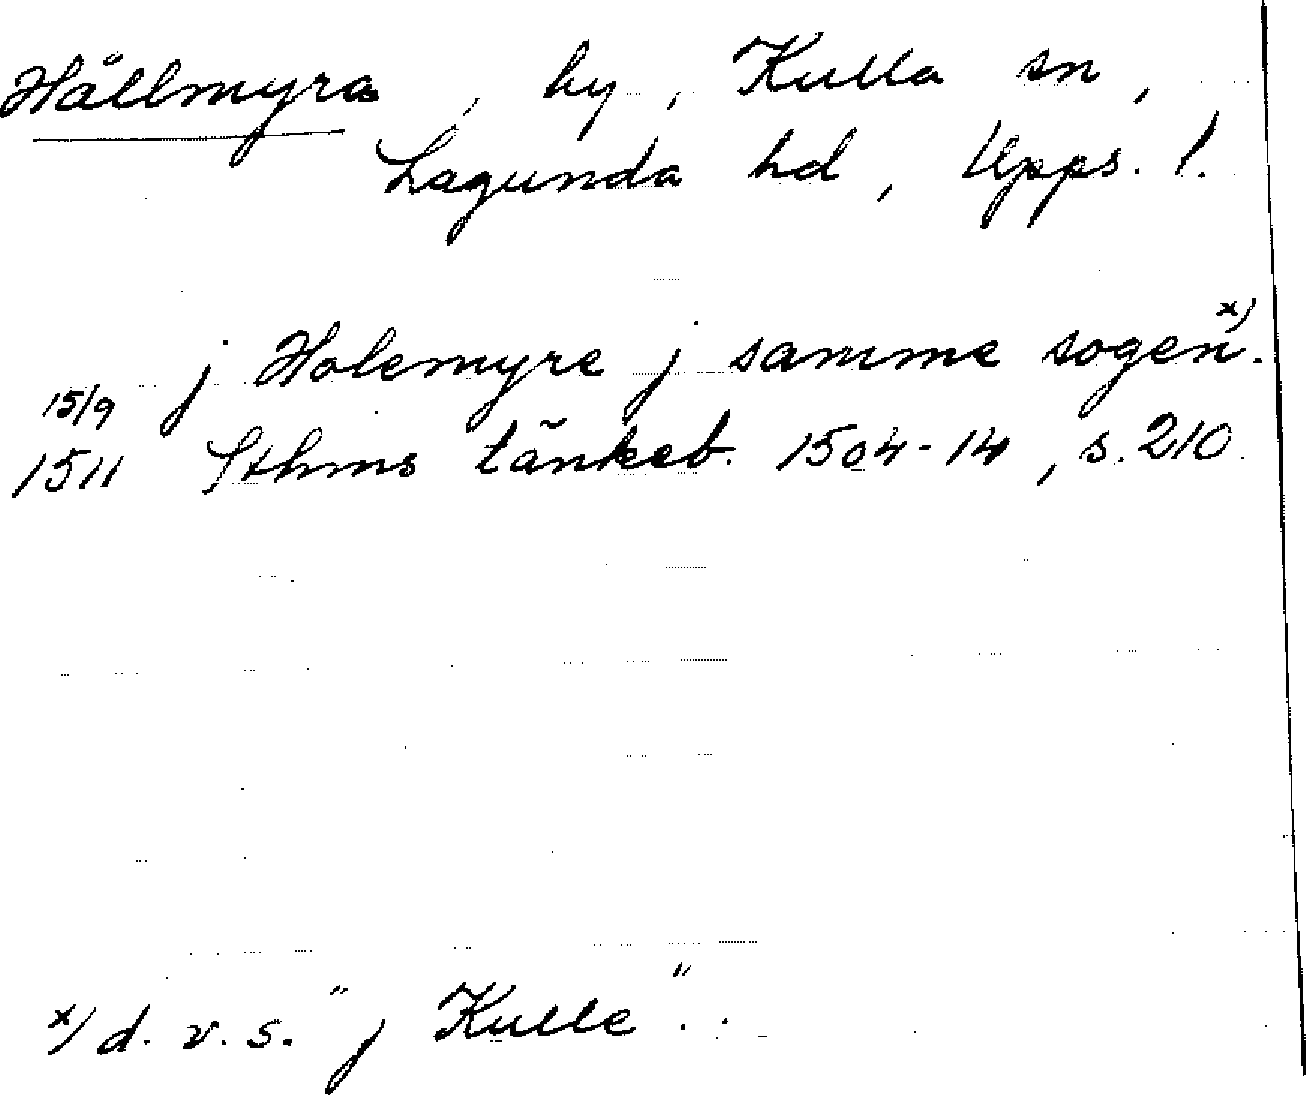 Hållmyra, by, Kulla sn,
Lagunda hd, Upps. l.
j Holemyre j samme sogen x).
15/9
1511 Sthms tänkeb. 1504-14, s. 210.
x) d. v. s. "j Kulle".